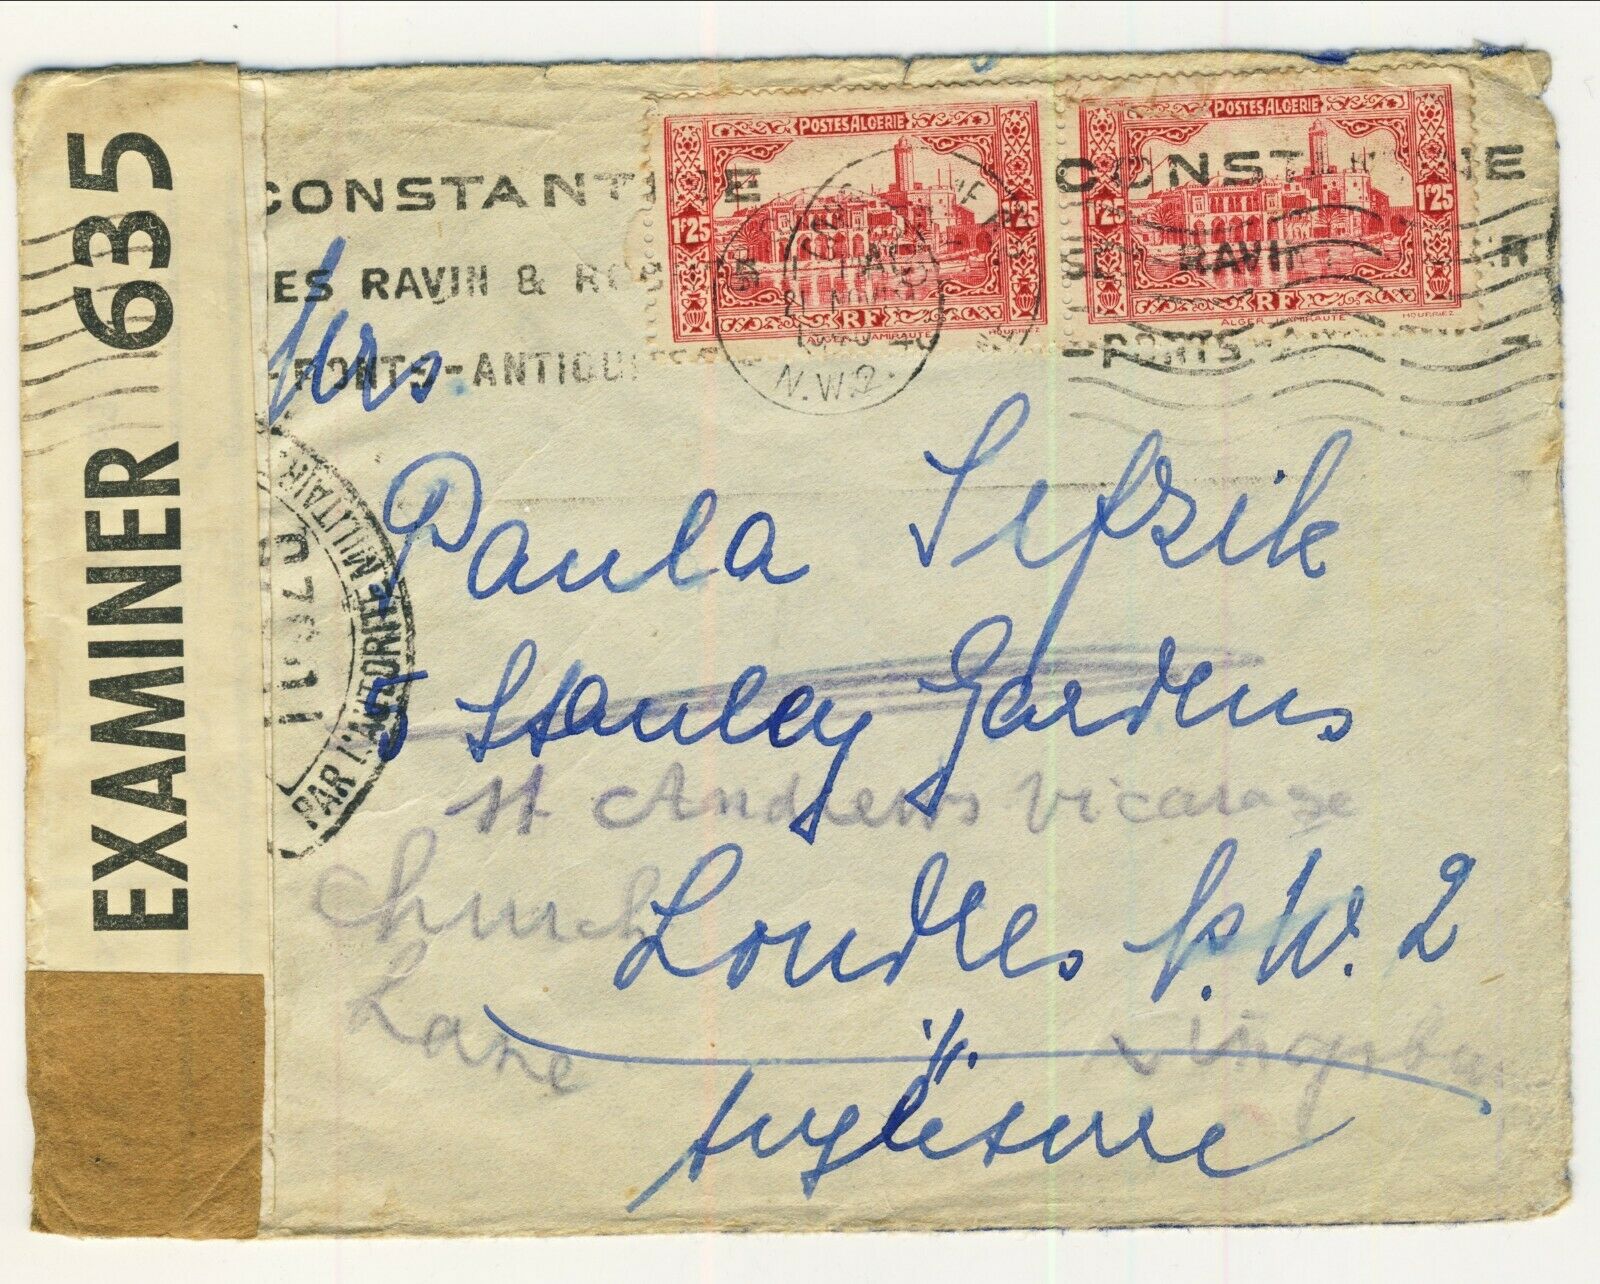 EXAMINER 635
CONSTANTINE
SES RAVIN & RO
-PONTS-ANTIQU
POSTES ALGERIE
1F25
1F25
RF
ALGER AMIRAUTE
HOURRIEZ
N.W.2.
POSTES ALGERIE
1F25
1F25
RF
ALGER AMIRAUTE
HOURRIEZ
CONSTANTINE
RAVIN
-PONTS-
PAR L'AUTORITE MILITAIRE
Mrs.
Paula Sefzik
5 Stanley Gardens
St Andrews Vicarage
Church
Lane
Londres N.W. 2
Kingsbury
Angleterre